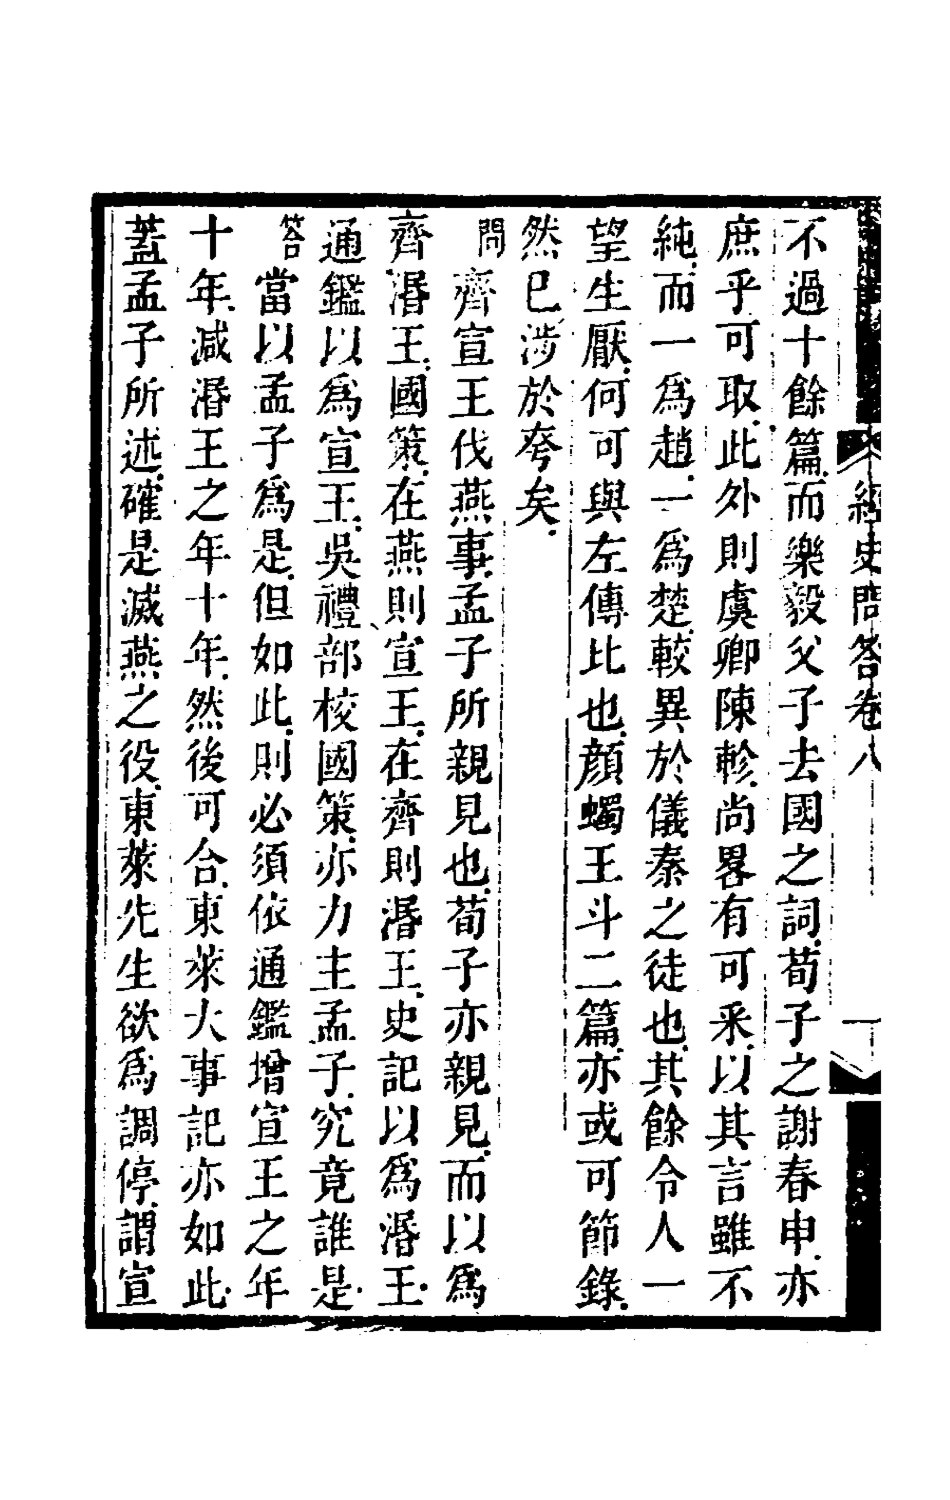 經史問答卷八
一
不過十餘篇.而樂毅父子去國之詞.荀子之謝春申.亦
庶乎可取.此外則虞卿陳軫.尚畧有可釆.以其言雖不
純.而一爲趙.一爲楚.較異於儀秦之徒也.其餘令人一
望生厭.何可與左傳比也.顔蠋王斗二篇.亦或可節錄.
然已涉於夸矣.
問 齊宣王伐燕事.孟子所親見也.荀子亦親見.而以爲
齊湣王.國策.在燕則宣王.在齊則湣王.史記以爲湣王.
通鑑以爲宣王.吳禮部校國策.亦力主孟子.究竟誰是.
答 當以孟子爲是.但如此.則必須依通鑑增宣王之年
十年.減湣王之年十年.然後可合.東萊大事記亦如此.
蓋孟子所述.確是滅燕之役.東萊先生欲爲調停.謂宣